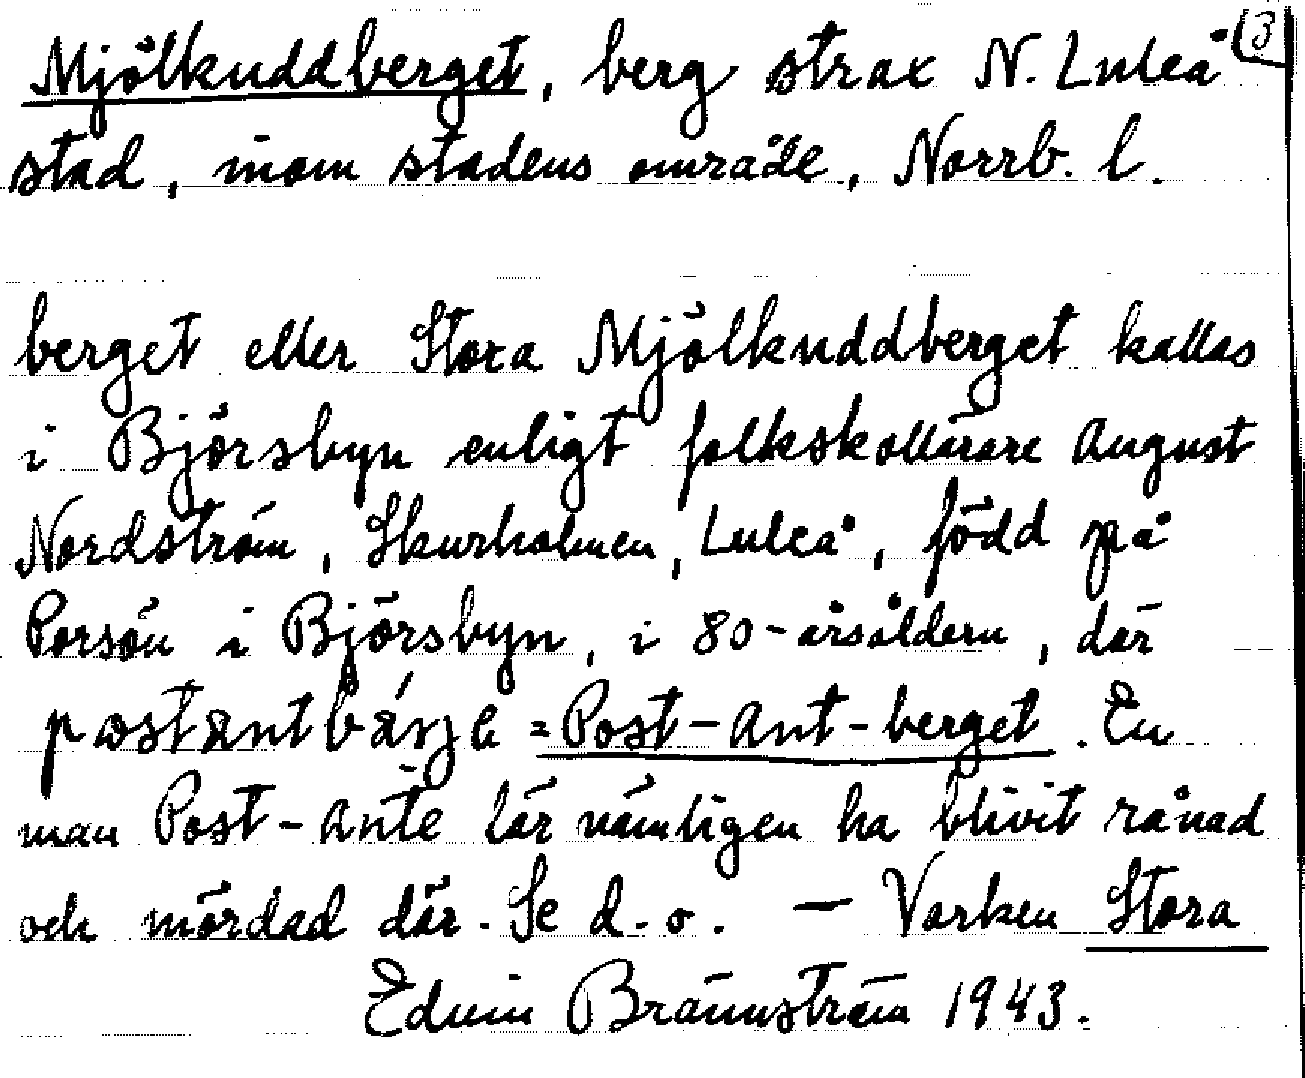 Mjölkuddberget, berg strax N. Luleå (3
stad, inom stadens område, Norrb. l.
berget eller Stora Mjölkuddberget kallas
i Björsbyn enligt folkskollärare August
Nordström, Skurholmen, Luleå, född på
Porsön i Björsbyn, i 80-årsåldern, där
= Post-Ant-berget. En
man Post-Ante lär nämligen ha blivit rånad
och mördad där. Se d. o. — Varken Stora
Edvin Brännström 1943.